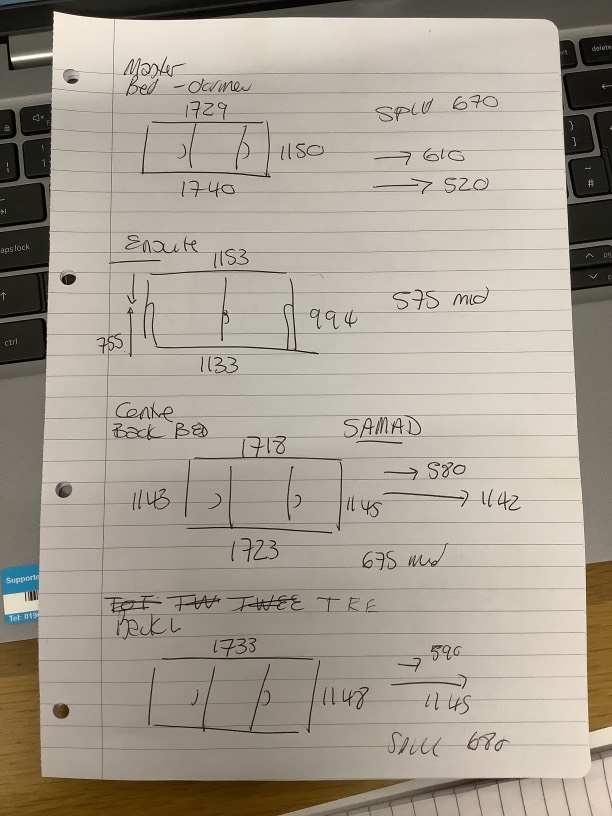 Master
Bed - dormer
1729
SPLIT 670
1150
→ 610
→ 520
1740
Ensuite
1153
575 mid
994
755
1133
Centre
Back BED
SAMAD
1718
→ 580
1143
1145
→ 1142
1723
675 mid
TOT TW TWEE TRE
Back L
1733
→ 590
1148
→
1145
Split 680
delete
caps lock
ctrl
Supporte
Tel: 019